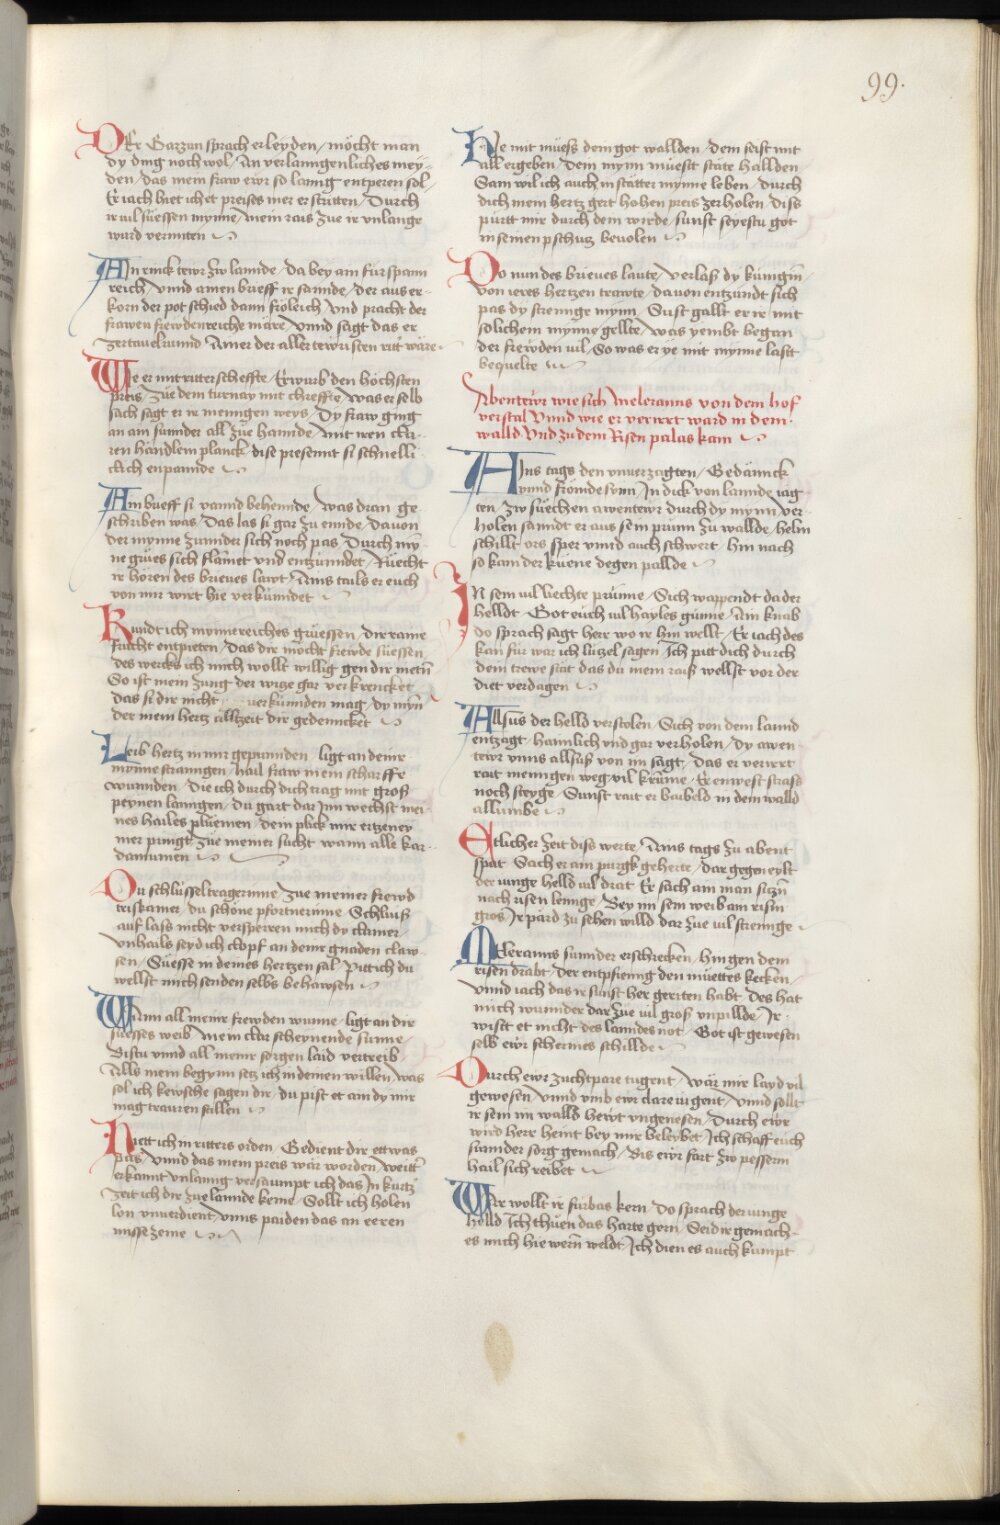 99.
Der Garzun sprach er leyden / möcht man
dy ding noch wol / An verlanngenliches mey-
den / das mein fraw ewr so lanng entperen sol /
Er iach biet ich et preises mer erstritten / Durch
ir vil süessen mynne / mein rais zue ir vnlange
wurd vermiten
Ain rinck tewr zw lannde / da bey ain fürspann
reich / vnnd ainen brieff ir sannde / der aus er-
korn der pot schied dann frölich / vnd pracht der
frawen frewdenreiche märe / vnnd sagt das er
zertauelrunnd / Ainer der aller tewristen rit wäre
Wie er mit ritterscheffte / Erwarb den höchsten
preis / zue dem turnay mit chreffte / was er selb
sach sagt er ir mennigen weys / Dy fraw ging
an ain sunder all zue hannde / mit iren cla-
ren hanndlein planck / dise presennt si schnelli
clich enpannde
Ain brieff si vannd behennde / was dran ge-
schriben was / Das las si gar zu ennde / dauon
der mynne zunnder sich noch pas / Durch my-
ne gües sich flamet vnd entzunndet / Ruecht
ir hören des brieues lawt / Ains tails er euch
von mir wirt hie verkünndet
Kundt ich mynnereiches grüessen / dir raine
frücht entpieten / Das dir möcht frewde süessen
des wercks ich mich wollt willig gen dir nietn
So ist mein zung der witze gar verkrencket
das si dir nicht verkünnden mag / dy myn
der mein hertz allzeit dir gedenncket
Leib hertz in mir gepunnden / ligt an deinr
mynne stranngen / hail fraw mein scharffe
wunnden / Die ich durch dich trag mit groß
peynen lanngen / du gart dar Inn wechst mei-
nes hailes pluemen / dein plick mir ertzeney
mer pringt zue meiner sucht wann alle kar-
damumen
Du schlüsseltragerinne / zue meiner frewd
triskamer / du schöne pfortnerinne / Schleuß
auf lass nicht versperren mich dy clamer /
vnhails seyd ich clopf an deinr gnaden claw-
sen / Süesse in deines hertzen sal / Pitt ich du
wellst mich senden selbs behawsen
Wann all meinr frewden wunne / ligt an dir
süesses weib / mein clar scheynende sunne /
Bistu vnnd all meinr sorgen laid vertreib
Alls mein begynn setz ich in deinen willen / was
sol ich kewsche sagen dir / du pist et ain dy mir
mag trauren stillen
Hiett ich in ritters orden / Gedient dir ettwas
pas / vnnd das mein preis wär worden / weitt
erkannt vnlanng versaumpt ich das / In kurtz
zeit ich dir zue lannde keme / Sollt ich holen
lon vnuerdient / vnns paiden das an eeren
missezeme
Hie mit muess dein got wallden / dem seist mit
all ergeben / Dem mynn müestt stäte hallden
Sam wil ich auch in stätter mynne leben / durch
dich mein hertz gert hohen preis zerholen / dise
pürtt mir durch dein wirde / sunst seyestu got
in seinen pschutz beuolen
Do nun des brieues laute / verlaß dy künigin /
von ieres hertzen trawte / dauon entzündt sich
pas dy strennge mynn / Sust gallt er ir mit
solichem mynne gellte / was yembt began
der frewden vil / So was er ye mit mynne lastt
bequelte
Abenteẅr wie sich meleranns von dem hof
verstal vnnd wie er verirrt ward in dem
walld vnd zu dem Risen palas kam
Ains tags den vnuerzagten / Gedännck
vnnd frömde synn / In dick von lannde iag-
ten / zw suechen awentewr durch dy mynn / ver-
holen sanndt er aus sein prünn zu wallde / helm
schillt ors sper vnnd auch schwert / hin nach
so kam der kuene degen pallde
In sein vil liechte prünne / Sich wappendt da der
helldt / Got euch vil hayles günne / Ain knab
do sprach sagt herr wo ir hin wellt / Er iach des
kan für war ich lützel sagen / Ich pitt dich durch
dein trewe stät das du mein raiß wellst vor der
diet verdagen
Allsus der helld verstolen / Sich von dem lannd
entzagt / haimlich vnd gar verholen / dy awen-
tewr vnns allsuß von im sagt / Das er verirrt
rait mennigen weg vil krumme / Er enwest strass
noch steyge / Sunst rait er balbeld in dem walld
allumbe
Etlicher zeit dise werte / Ains tags zu abent
spat / Sach er ain purgk geherte / dar gegen eylt
der iunge helld vil drat / Er sach ain man sizn
nach risen lennge / Bey im sein weib ain risin
gros / Ir pärd zu sehen willd dar zue vil strennge
Meleranns sunnder erschrecken / hin gen dem
risen drabt / Der entpfienng den muettes kecken /
vnnd iach das ir sunst her geriten habt / Des hat
mich wunnder dar zue vil groß vnpillde / Ir
wistt et nicht des lanndes not / Got ist gewesen
selb ewr schermes schillde
Durch ewr zuchtpäre tugent / wär mir layd vil
gewesen / vnnd vmb ewr clare iugent / vnnd sollt
ir sein im walld hewt vngenesen / Durch ewr
wird herr heint bey mir beleybet / Ich schaff euch
sunnder sorg gemach / Bis ewr fart zw pesserm
hail sich reibet
Wer wollt ir fürbas kern / Do sprach der iunge
helld / Ich thuen das harte gern / Seid ir gemach-
es mich hie wern weldt / Ich dien es auch kumpt